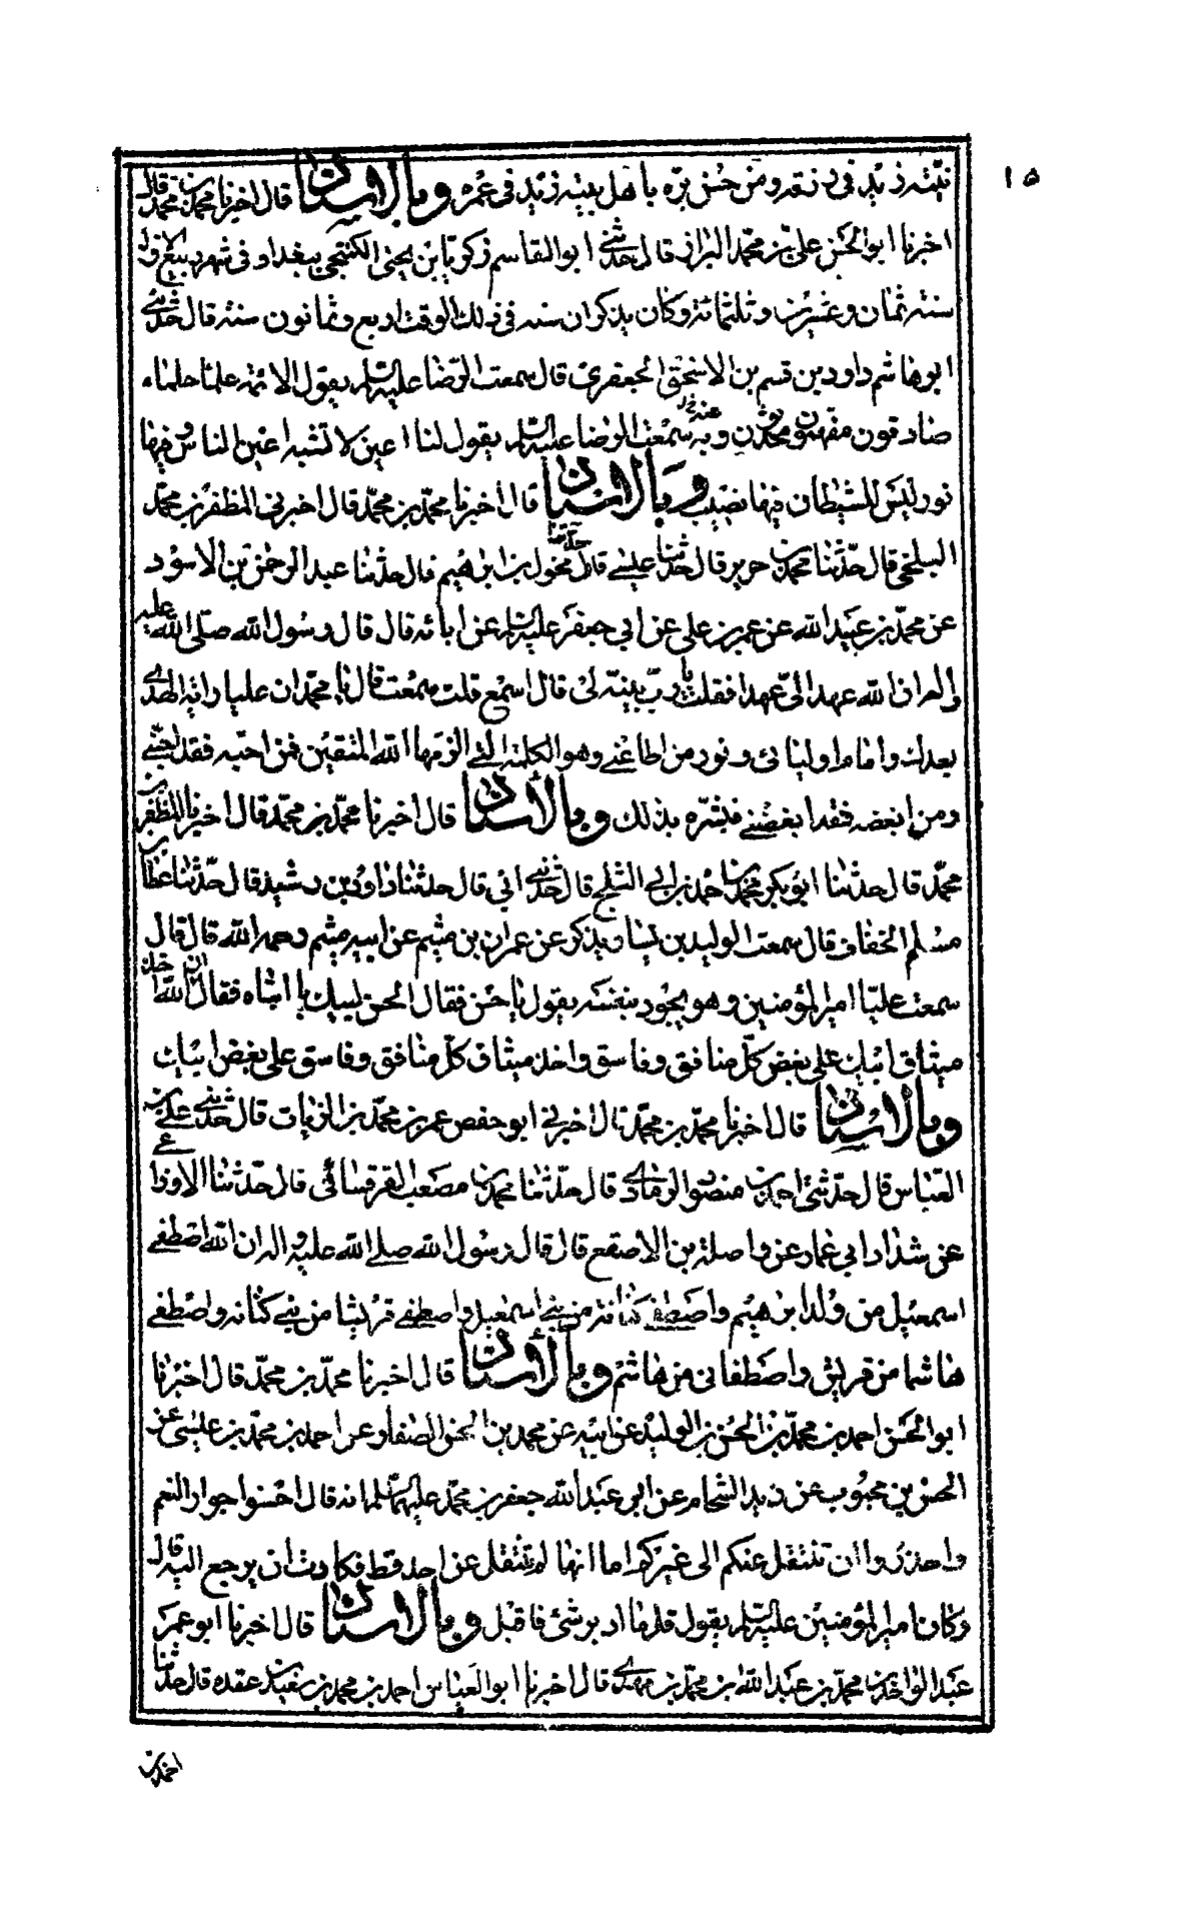 ١٥
نيته زيد في رزقه ومن حسن بره باهل بيته زيد في عمره وبالاسناد قال اخبرنا محمد بن محمد قال
اخبرنا ابو الحسن علي بن محمد البزاز قال حدثني ابو القاسم زكريا بن يحيى الكنتجي ببغداد في شهر ربيع الاول
سنة ثمان وعشرين وثلثمائة وكان يذكر ان سنه في ذلك الوقت اربع وثمانون سنة قال حدثني
ابو هاشم داود بن قسم بن الاسحق الجعفري قال سمعت الرضا عليه السلم يقول الائمة علماء حلماء
صادقون مفهمون محدثون وبه عنه خ ل سمعت الرضا عليه السلم يقول لنا اعين لا تشبه اعين الناس فيها
نور ليس للشيطان فيها نصيب وبالاسناد قال اخبرنا محمد بن محمد قال اخبرني المظفر بن محمد
البلخي قال حدثنا محمد بن جرير قال حدثنا عيسى قال حدثنا مخول بن ابرهيم قال حدثنا عبد الرحمن بن الاسود
عن محمد بن عبيد الله عن عمر بن علي عن ابي جعفر عليه السلم عن ابائه قال قال رسول الله صلى الله عليه
واله ان الله عهد الي عهدا فقلت يا رب بينه لي قال اسمع قلت سمعت قال يا محمد ان عليا راية الهدى
بعدك وامام اوليائي ونور من اطاعني وهو الكلمة التي الزمها الله المتقين فمن احبه فقد احبني
ومن ابغضه فقد ابغضني فبشره بذلك وبالاسناد قال اخبرنا محمد بن محمد قال اخبرنا المظفر بن
محمد قال حدثنا ابو بكر محمد بن احمد بن ابي الثلج قال حدثني ابي قال حدثنا داود بن رشيد قال حدثنا عطا بن
مسلم الخفاف قال سمعت الوليد بن يسار يذكر عن عمران بن ميثم عن ابيه ميثم رحمه الله قال قال
سمعت عليا امير المؤمنين وهو يجود بنفسه يقول يا حسن فقال الحسن لبيك يا ابتاه فقال ان الله اخذ
ميثاق ابيك على بغض كل منافق وفاسق واخذ ميثاق كل منافق وفاسق على بغض ابيك
وبالاسناد قال اخبرنا محمد بن محمد قال اخبرني ابو حفص عمر بن محمد بن الزيات قال حدثني علي بن
العباس قال حدثني احمد بن منصور الرمادي قال حدثنا محمد بن مصعب القرقسائي قال حدثنا الاوزاعي
عن شداد ابي عمار عن واصلة بن الاصقع قال قال رسول الله صلى الله عليه واله ان الله اصطفى
اسمعيل من ولد ابرهيم واصطفى كنانة من بني اسمعيل واصطفى قريشا من بني كنانة واصطفى
هاشما من قريش واصطفاني من هاشم وبالاسناد قال اخبرنا محمد بن محمد قال اخبرنا
ابو الحسن احمد بن محمد بن الحسن بن الوليد عن ابيه عن محمد بن الحسن الصفار عن احمد بن محمد بن عيسى عن
الحسن بن محبوب عن زيد الشحام عن ابي عبد الله جعفر بن محمد عليهما السلم انه قال احسنوا جوار النعم
واحذروا ان تنتقل عنكم الى غيركم اما انها لم تنتقل عن احد قط فكادت ان يرجع اليه قال
وكان امير المؤمنين عليه السلم يقول قلما ادبر شئ فاقبل وبالاسناد قال اخبرنا ابو عمر
عبد الواحد بن محمد بن عبد الله بن محمد بن مهدي قال اخبرنا ابو العباس احمد بن محمد بن سعيد بن عقده قال حدثنا
احمد بن